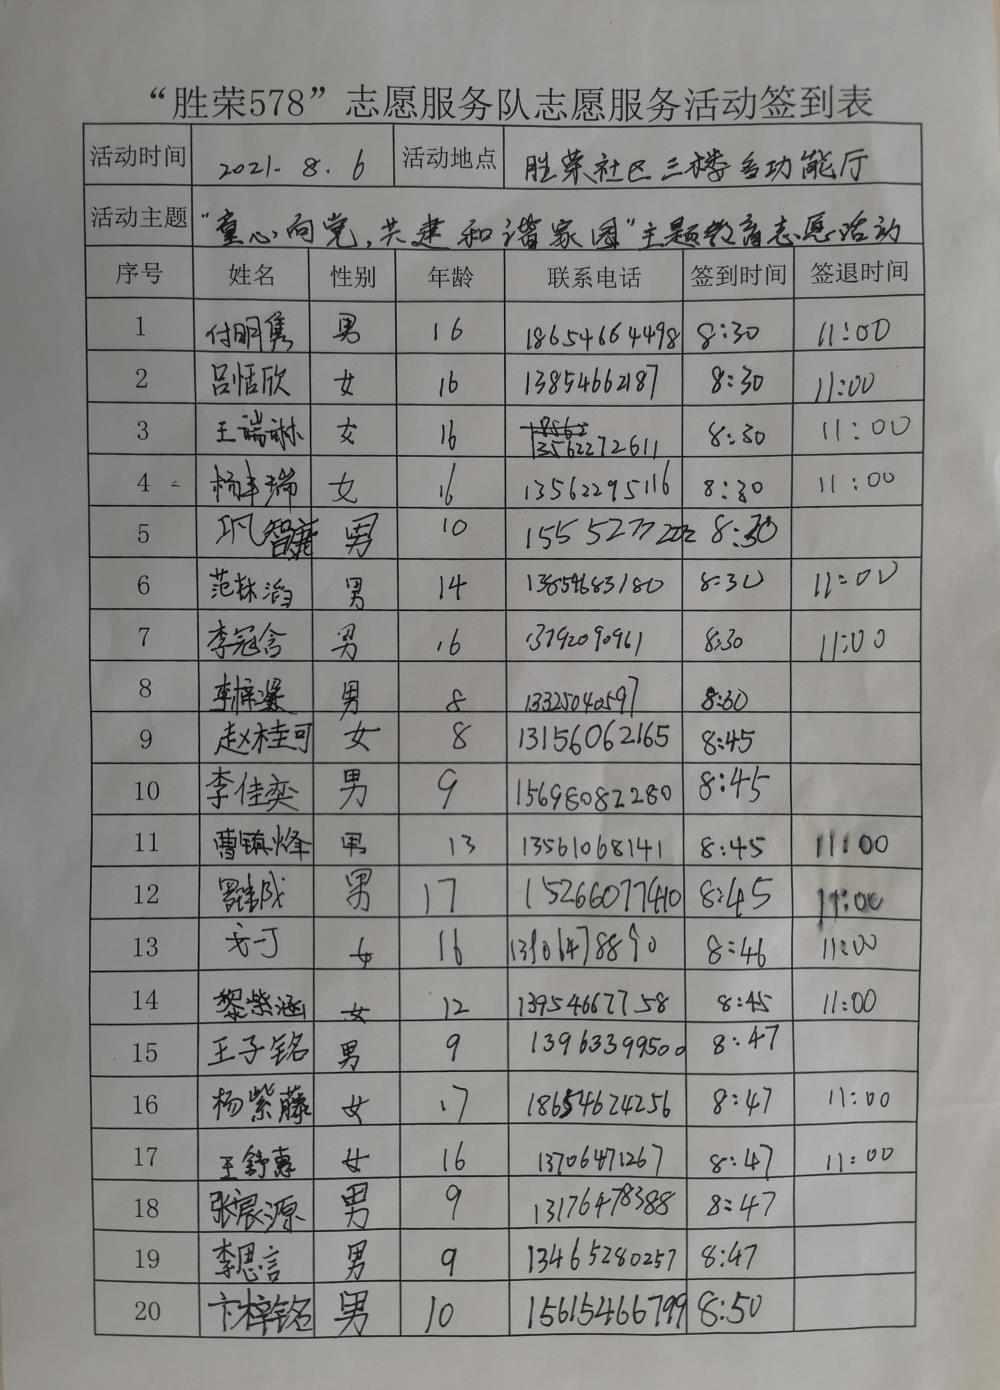 “胜荣578”志愿服务队志愿服务活动签到表
活动时间 2021.8.6 活动地点 胜荣社区三楼多功能厅
活动主题 “童心向党,共建和谐家园”主题教育志愿活动
序号 姓名 性别 年龄 联系电话 签到时间 签退时间
1 付明隽 男 16 18654664498 8:30 11:00
2 吕恬欣 女 16 13854662187 8:30 11:00
3 王瑞琳 女 16 13562272611 8:30 11:00
4 杨丰瑞 女 16 13562295116 8:30 11:00
5 男 10 15552777222 8:30
6 男 14 13854683180 8:30 11:00
7 李冠含 男 16 8:30 11:00
8 男 8 13325040597 8:30
9 赵桂可 女 8 13156062165 8:45
10 李佳奕 男 9 15698082280 8:45
11 曹镇烽 男 13 13561068141 8:45 11:00
12 男 17 15266077410 8:45 11:00
13 方一丁 女 16 8:46 11:00
14 黎紫涵 女 12 13954667758 8:45 11:00
15 王子铭 男 9 13963399500 8:47
16 杨紫藤 女 17 18654624256 8:47 11:00
17 王舒惠 女 16 13706471267 8:47 11:00
18 张宸源 男 9 13176478388 8:47
19 李思言 男 9 13465280257 8:47
20 卞梓铭 男 10 15615466799 8:50